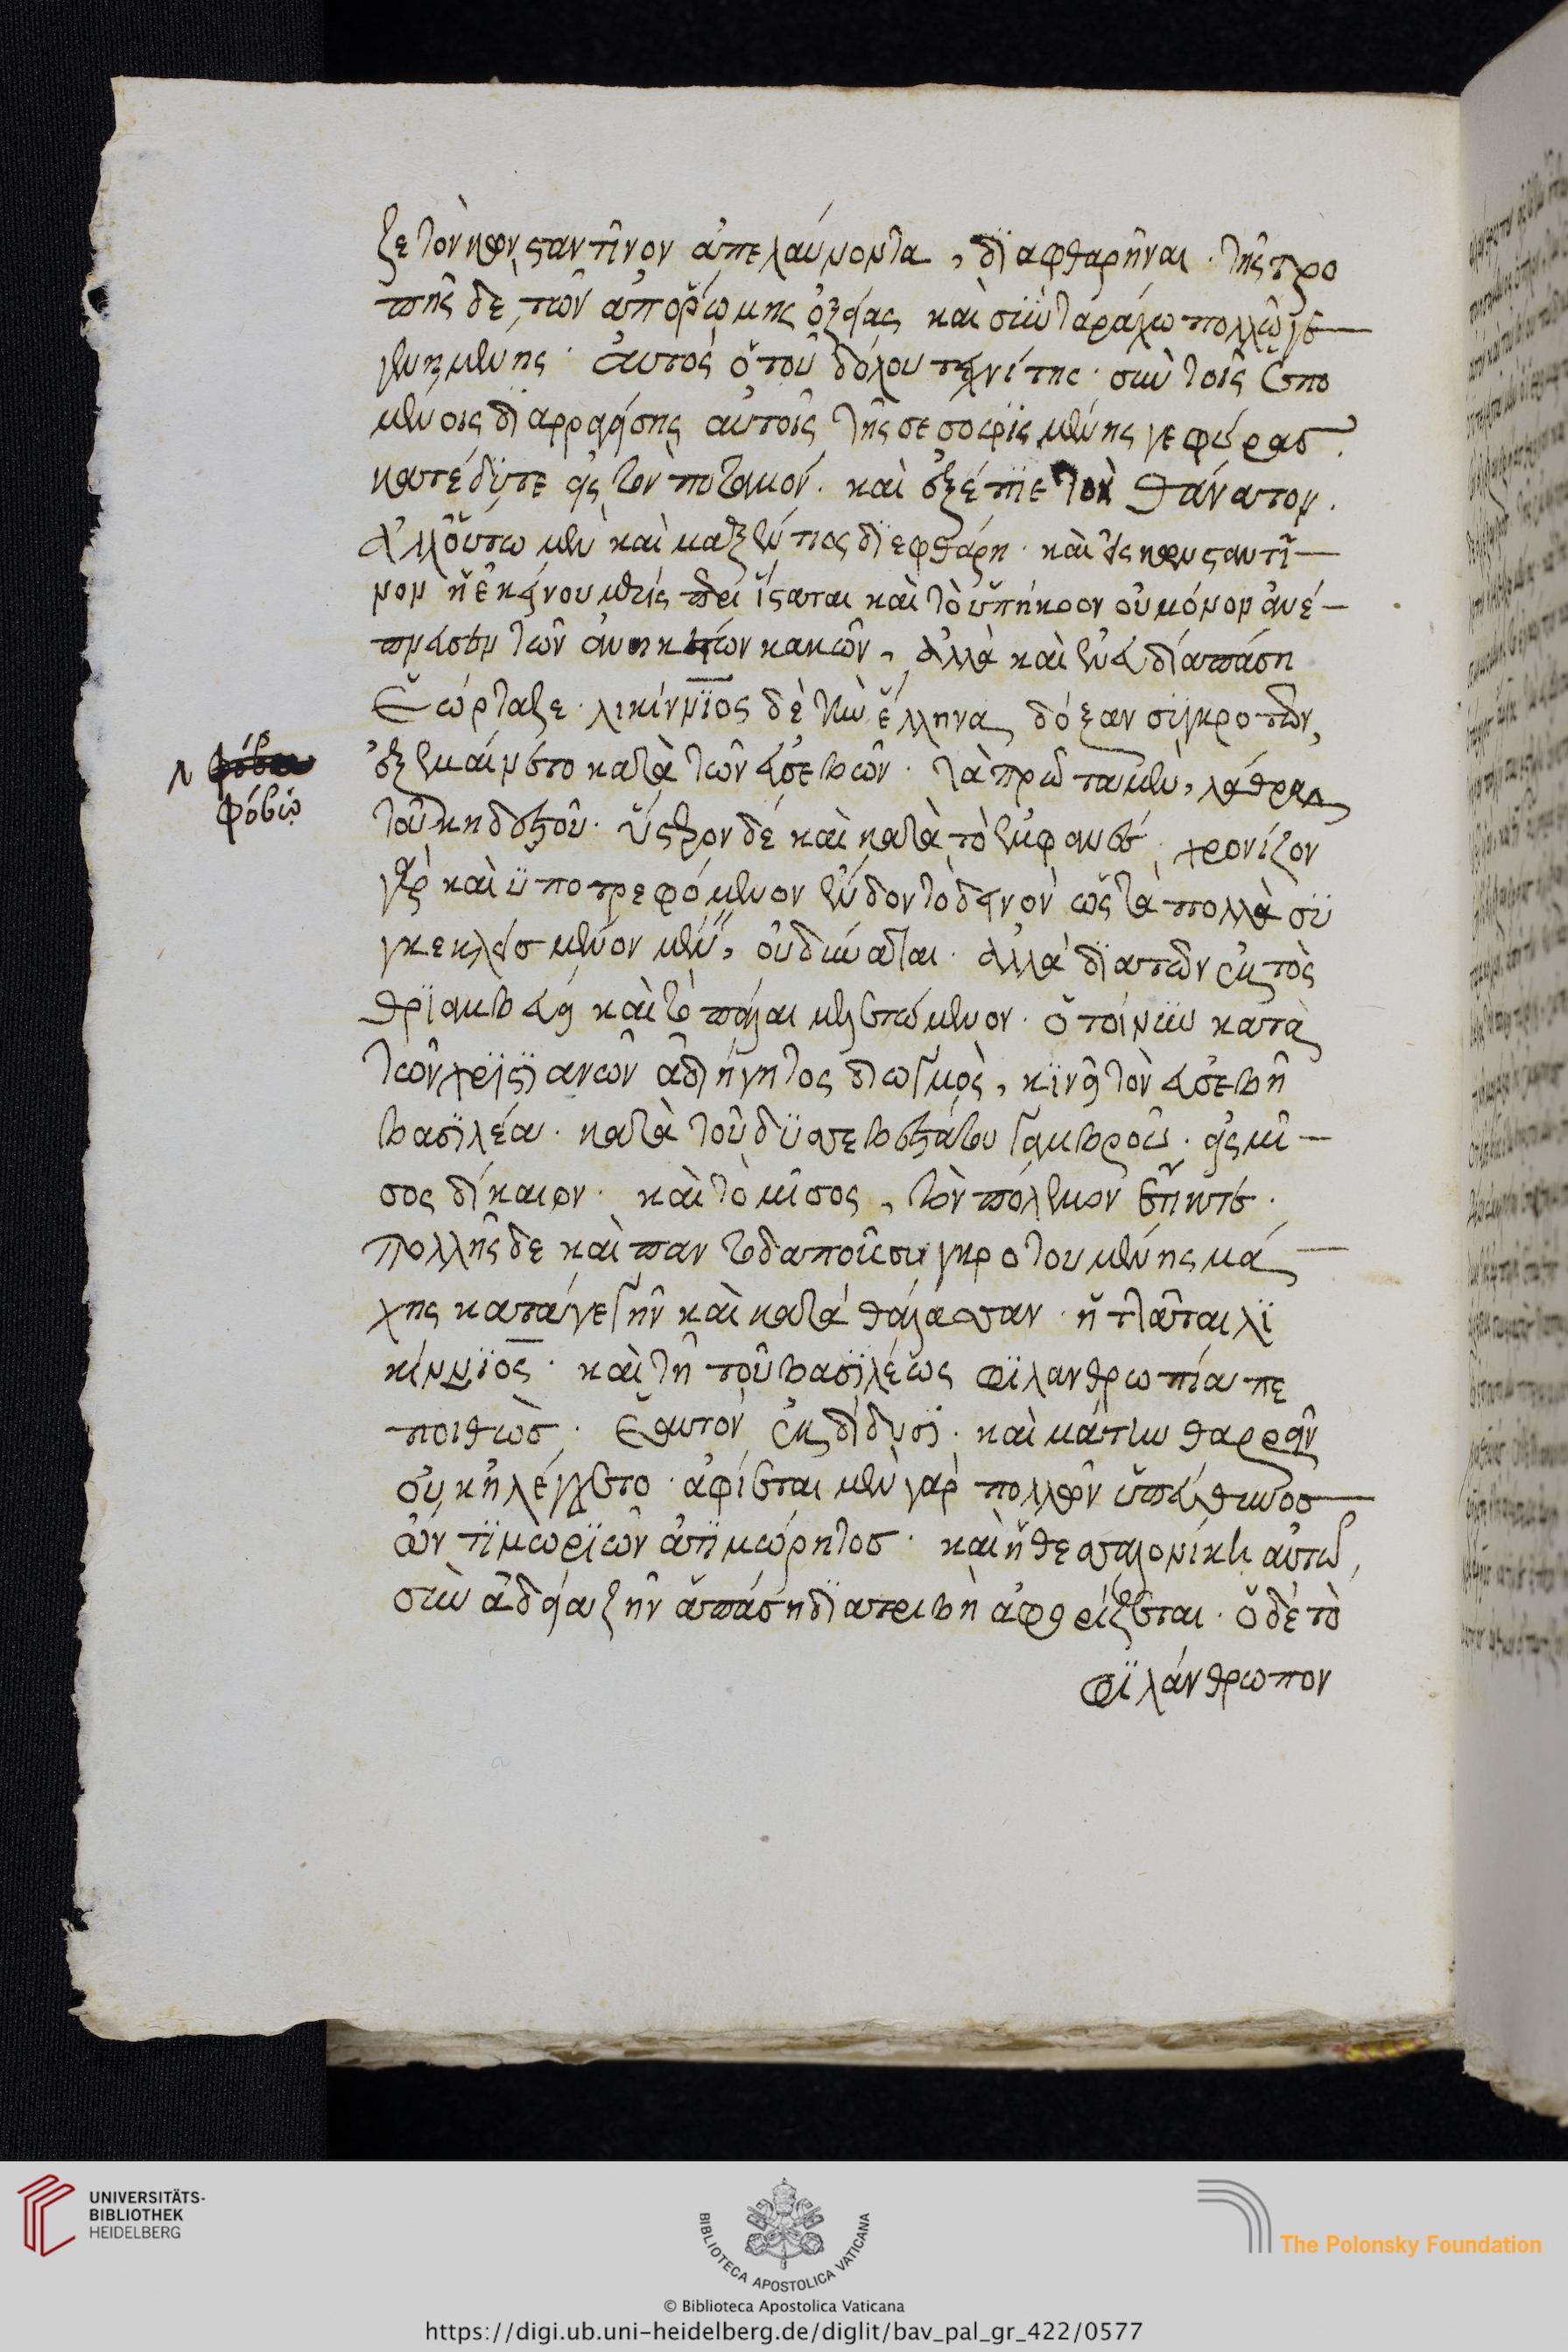 ζε τὸν κωνσταντῖνον ἀπελαύνοντα, διαφθαρῆναι. τῆς τρο
πῆς δὲ τῶν ἀπὸ ῥώμης ὀξείας καὶ σὺν ταράχω πολλῶ γε
γενημένης. αὐτὸς ὁ τοῦ δόλου τεχνίτης. σὺν τοῖς ἑπο
μένοις διαρραγείσης αὐτοῖς τῆς σεσοφισμένης γεφύρας.
κατέδυτε εἰς τὸν ποταμόν. καὶ ἐξέπιε τὸν θάνατον.
ἀλλ' οὕτω μὲν καὶ μαξέντιος διεφθάρη. καὶ εἰς κωνσταντῖ
νον ἡ ἐκείνου μερὶς περιΐσταται καὶ τὸ ὑπήκοον οὐ μόνον ἀνέ
πνευσεν τῶν ἀνηκέστων κακῶν, ἀλλὰ καὶ
ἑώρταζε. λικίννιος δὲ τὴν ἕλληνα δόξαν συγκροτῶν,
ἐξεμαίνετο κατὰ τῶν εὐσεβῶν. τὰ πρῶτα μὲν, λάθρα
φόβω
τοῦ κηδεστοῦ. ὕστερον δὲ καὶ κατὰ τὸ ἐμφανές. χρονίζον
γὰρ καὶ ὑποτρεφόμενον ἔνδον τὸ δεινὸν ὡς τὰ πολλὰ συ
γκεκλεισμένον μένειν, οὐ δύναται. ἀλλὰ διαπτᾶν ἐκτὸς
θριαμβεύει καὶ τὸ πάλαι μελετώμενον. ὁ τοίνυν κατὰ
τῶν χριστιανῶν ἀδιήγητος διωγμὸς, κινεῖ τὸν εὐσεβῆ
βασιλέα. κατὰ τοῦ δυσσεβεστάτου γαμβροῦ. εἰς μῖ
σος δίκαιον. καὶ τὸ μῖσος, τὸν πόλεμον ἐπῆκτε.
πολλῆς δὲ καὶ παντοδαποῦς συγκροτουμένης μά
χης κατὰ γε γῆν καὶ κατὰ θάλασσαν. ἡττᾶται λι
κίννιος. καὶ τῇ τοῦ βασιλέως φιλανθρωπία πε
ποιθὼς. ἑαυτὸν ἐκδίδωσι. καὶ μάτην θαρρεῖν
οὐκ ἠλέγχετο. ἀφίεται μὲν γὰρ πολλῶν ὑπεύθυνος
ὢν τιμωριῶν ἀτιμώρητος. καὶ ἡ θεσσαλονίκη αὐτῶ,
σὺν ἀδεία ζῆν ἁπάση διατριβὴ ἀφορίζεται. ὁ δὲ τὸ
φιλάνθρωπον
UNIVERSITÄTS-
BIBLIOTHEK
HEIDELBERG
BIBLIOTECA APOSTOLICA VATICANA
The Polonsky Foundation
© Biblioteca Apostolica Vaticana
https://digi.ub.uni-heidelberg.de/diglit/bav_pal_gr_422/0577